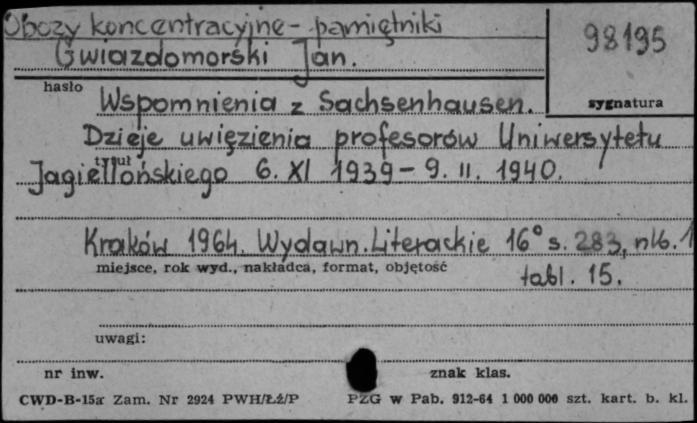 Obozy koncentracyjne - pamiętniki
Gwiazdomorski Jan.
98195
hasło
sygnatura
Wspomnienia z Sachsenhausen.
Dzieje uwięzienia profesorów Uniwersytetu
tytuł
Jagiellońskiego 6. XI 1939 - 9. II. 1940.
Kraków 1964. Wydawn. Literackie 16° s. 283, nlb. 1
miejsce, rok wyd., nakładca, format, objętość
tabl. 15.
uwagi:
nr inw.
znak klas.
CWD-B-15a Zam. Nr 2924 PWH/Łź/P
PZG w Pab. 912-64 1 000 000 szt. kart. b. kl.